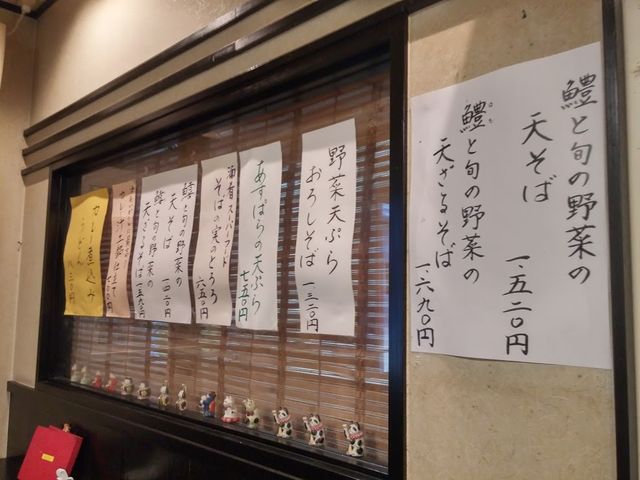 鱧と旬の野菜の
天そば
一、五二〇円
鱧と旬の野菜の
天ざるそば
一、六九〇円
野菜天ぷら
おろしそば
一、三二〇円
あすぱらの天ぷら
七五〇円
スーパーフード
そばの実のとろろ
六五〇円
鱚と旬の野菜の
天そば
鱚と旬の野菜の
天ざるそば
煮込み